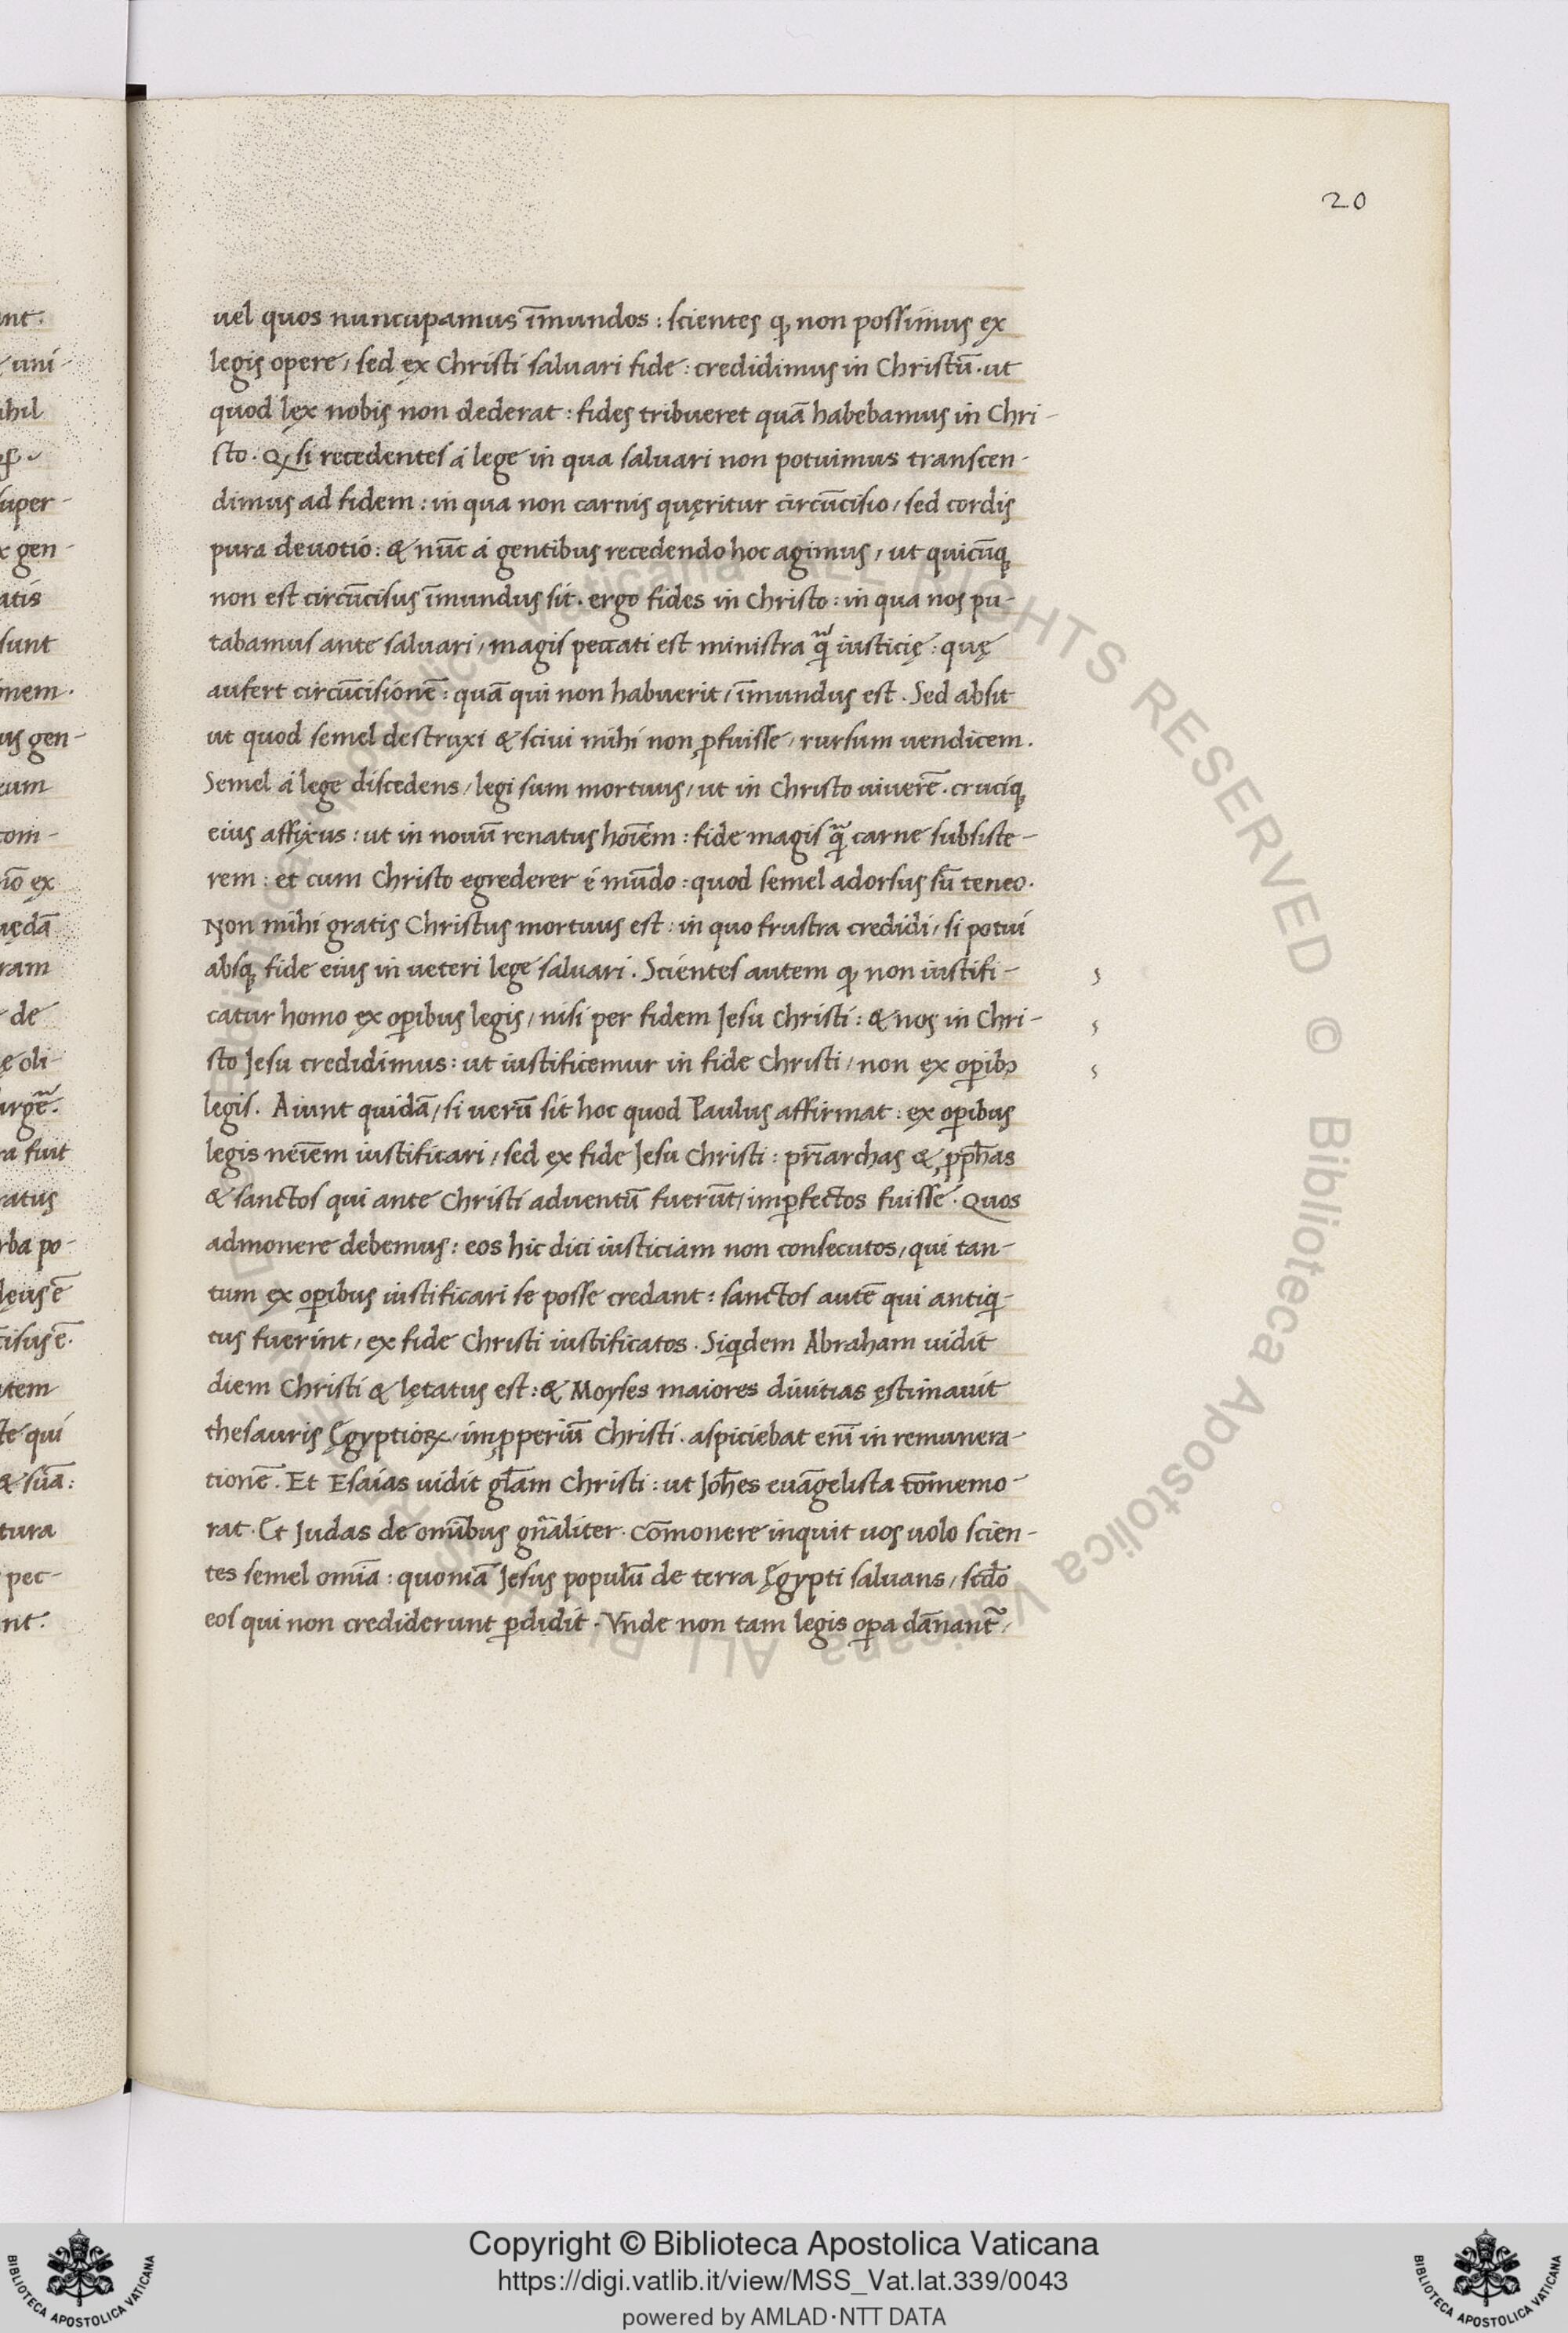 20
uel quos nuncupamus īmundos : scientes ꝙ non possimus ex
legis opere / sed ex Christi saluari fide : credidimus in Christū . ut
quod lex nobis non dederat : fides tribueret quā habebamus in Chri-
sto . Qꝫ si recedentes á lege in qua saluari non potuimus transcen-
dimus ad fidem : in qua non carnis quęritur circūcisio / sed cordis
pura deuotio : & nūc á gentibus recedendo hoc agimus / ut quicūqꝫ
non est circūcisus īmundus sit . ergo fides in Christo : in qua nos pu-
tabamus ante saluari / magis peccati est ministra q̃ iusticię : quę
aufert circūcisionē : quā qui non habuerit / īmundus est . Sed absit
ut quod semel destruxi & sciui mihi non ꝓfuisse / rursum uendicem .
Semel á lege discedens / legi sum mortuus / ut in Christo uiuerē . cruciqꝫ
eius affixus : ut in nouū renatus hoīem : fide magis q̃ carne subsiste-
rem : et cum Christo egrederer é mūdo : quod semel adorsus sū teneo .
Non mihi gratis Christus mortuus est : in quo frustra credidi / si potui
absqꝫ fide eius in ueteri lege saluari . Scientes autem ꝙ non iustifi-
catur homo ex oꝑibus legis / nisi per fidem Jesu Christi : & nos in Chri-
sto Jesu credidimus : ut iustificemur in fide Christi / non ex oꝑibꝫ
legis . Aiunt quidā / si uerū sit hoc quod Paulus affirmat : ex oꝑibus
legis neīem iustificari / sed ex fide Jesu Christi : pr̄iarchas & ꝓph̄as
& sanctos qui ante Christi aduentū fuerūt / imꝑfectos fuisse . Quos
admonere debemus : eos hic dici iusticiam non consecutos / qui tan-
tum ex oꝑibus iustificari se posse credant : sanctos autē qui antiq-
tus fuerint / ex fide Christi iustificatos . Siqdem Abraham uidit
diem Christi & lętatus est : & Moyses maiores diuitias ęstimauit
thesauris Ęgyptioꝝ / imꝓperiū Christi . aspiciebat enī in remunera-
tionē . Et Esaias uidit gl̄am Christi : ut Joh̄es euāgelista cōmemo-
rat . Et Judas de omībus gn̄aliter . Cōmonere inquit uos uolo scien-
tes semel omīa : quoniā Jesus populū de terra Ęgypti saluans / scd̄o
eos qui non crediderunt ꝑdidit . Vnde non tam legis oꝑa dānant᷑ /
Copyright © Biblioteca Apostolica Vaticana
https://digi.vatlib.it/view/MSS_Vat.lat.339/0043
powered by AMLAD·NTT DATA